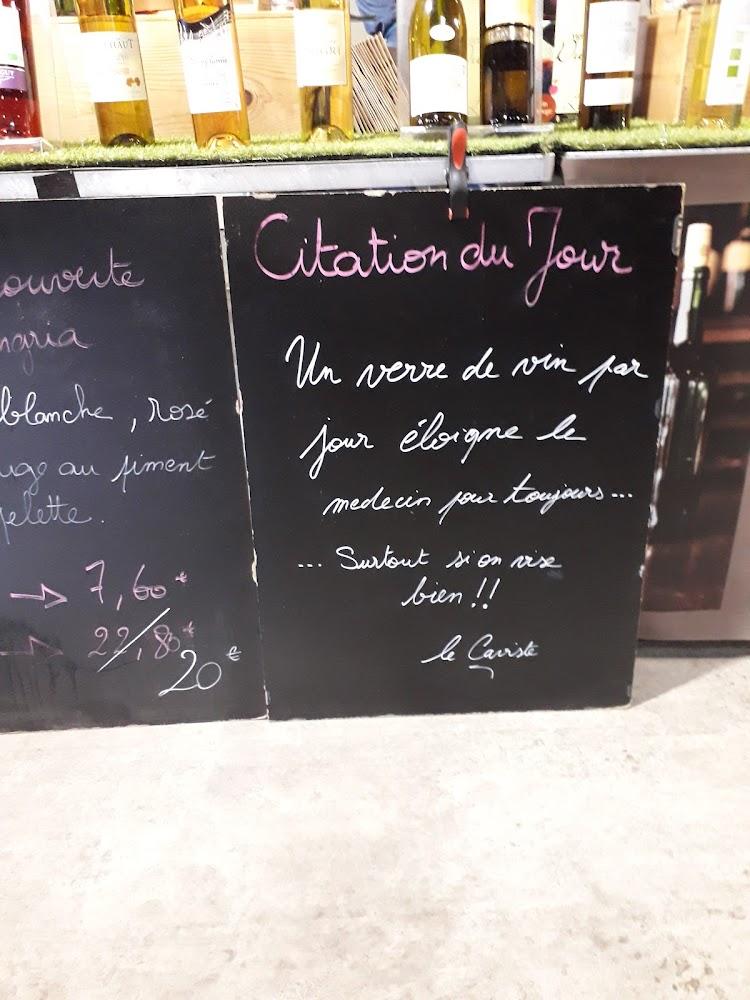 ouverte
ngria
blanche, rosé
uge au piment
pelette.
→ 7,60 €
→ 22,80 €
20 €
Citation du Jour
Un verre de vin par
jour éloigne le
medecin pour toujours...
... Surtout si on vise
bien !!
le Caviste